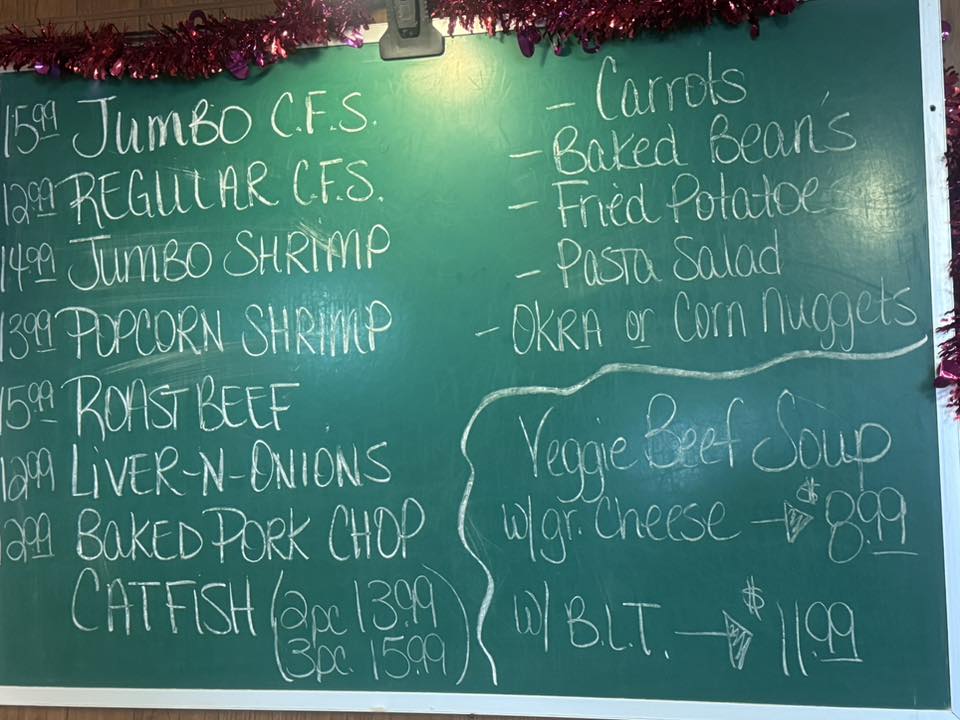 15.99 JUMBO C.F.S.
12.99 REGULAR C.F.S.
14.99 JUMBO SHRIMP
13.99 POPCORN SHRIMP
15.99 ROAST BEEF
12.99 LIVER-N-ONIONS
12.99 BAKED PORK CHOP
CATFISH (2pc 13.99
3pc. 15.99)
- Carrots
- Baked Bean's
- Fried Potatoe
- Pasta Salad
- OKRA or Corn Nuggets
Veggie Beef Soup
w/gr. Cheese → $8.99
w/ B.L.T. → $11.99